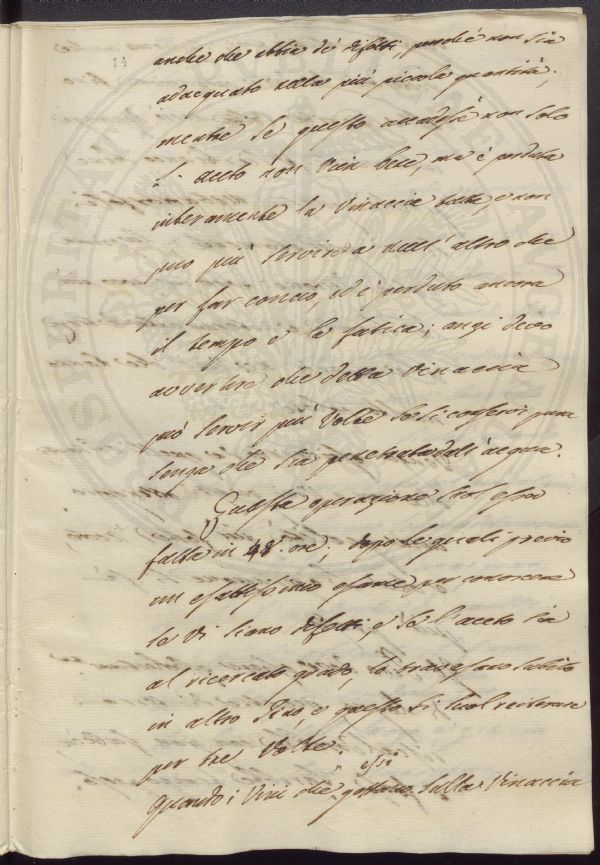 14
anche che abbia de' difetti, perché non sia
adacquato colla più piccola quantità,
mentre se questo accadesse non solo
l'aceto non vien bene, ma è perduta
interamente la Vinaccia tutta, e non
può più servire a null'altro che
per far concio, ed è perduto ancora
il tempo e la fatica; anzi devo
avvertire che detta Vinaccia
può servir più volte se si conservi pura
senza che sia penetrata dall'acqua.
Questa operazione suol esser
fatta in 48. ore; dopo le quali previo
un esattissimo esame per conoscere
se vi siano difetti, e se l'aceto sia
al ricercato grado, lo travasano subito
in altro Tino, e questo si suol reiterare
per tre volte.
essi
Quando i Vini che gettano sulla Vinaccia